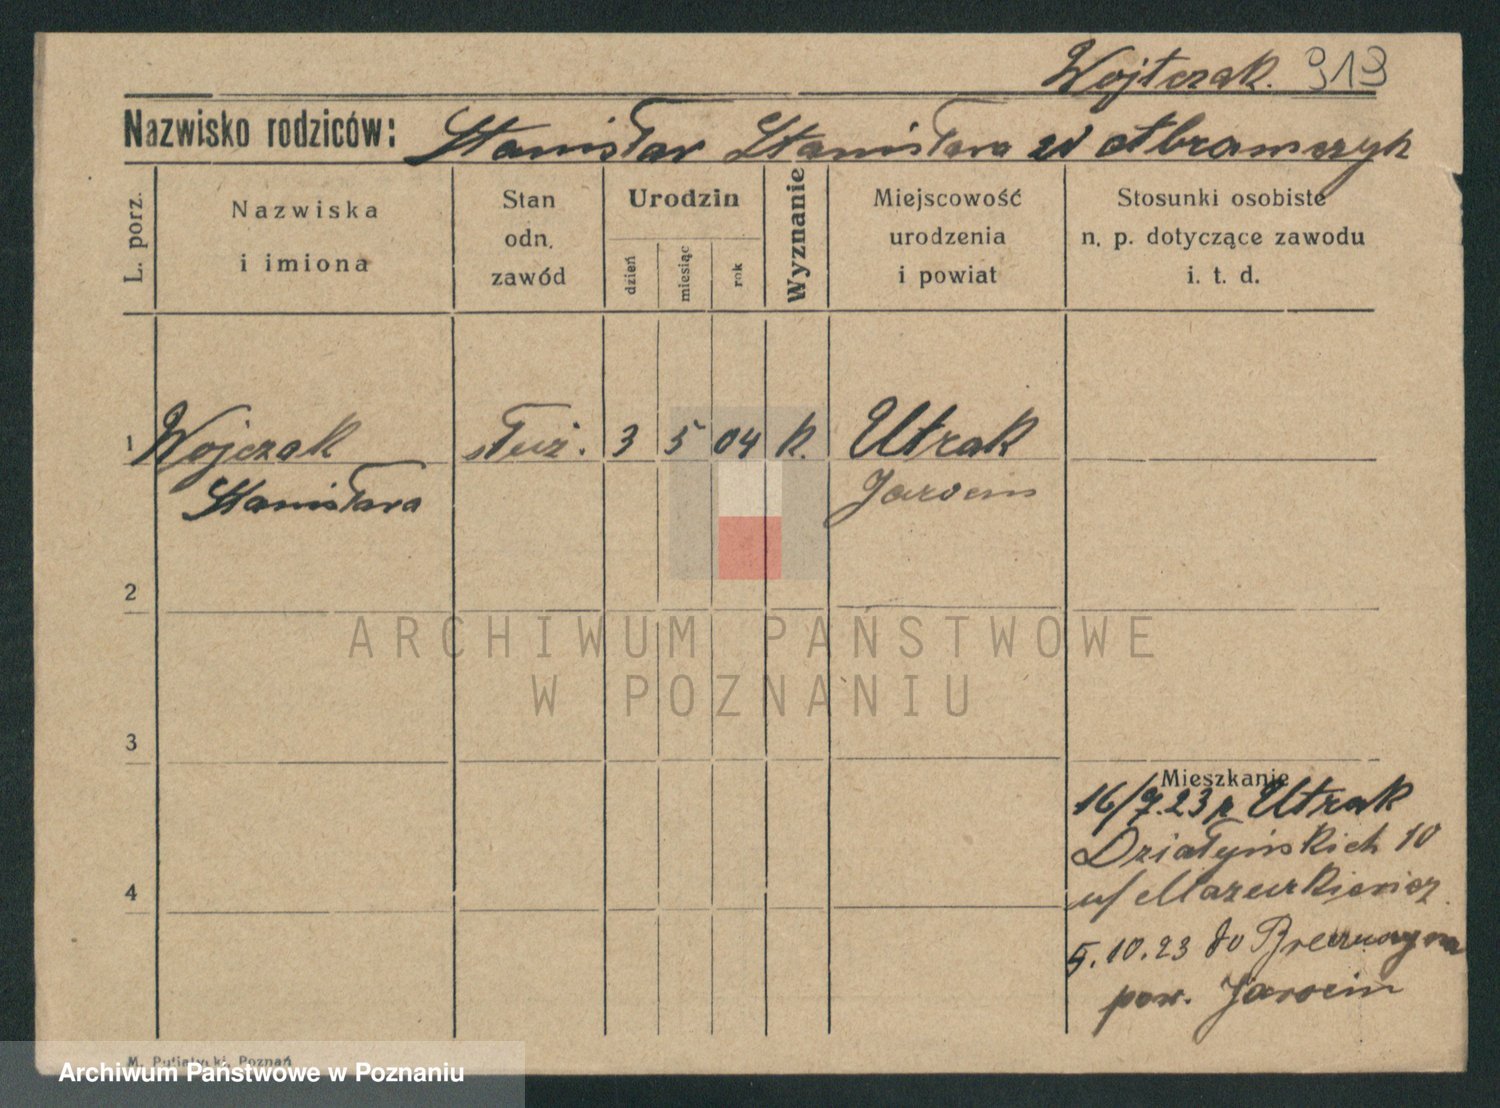 Wojtczak. 313
Nazwisko rodziców: Stanisław Stanisława zd Abramczyk
L. porz.
Nazwiska
i imiona
Stan
odn.
zawód
Urodzin
dzień
miesiąc
rok
Wyznanie
Miejscowość
urodzenia
i powiat
Stosunki osobiste
n. p. dotyczące zawodu
i. t. d.
1 Wojczak służ. 3 5 04 k. Utrak
Stanisława Jarocin
2
ARCHIWUM PAŃSTWOWE
W POZNANIU
3
Mieszkanie
16/7.23 z Utrak
Działyńskich 10
u/ Mazurkiewicz
4
5.10.23 do
pow. Jarocin
M. Putiatycki, Poznań
Archiwum Państwowe w Poznaniu